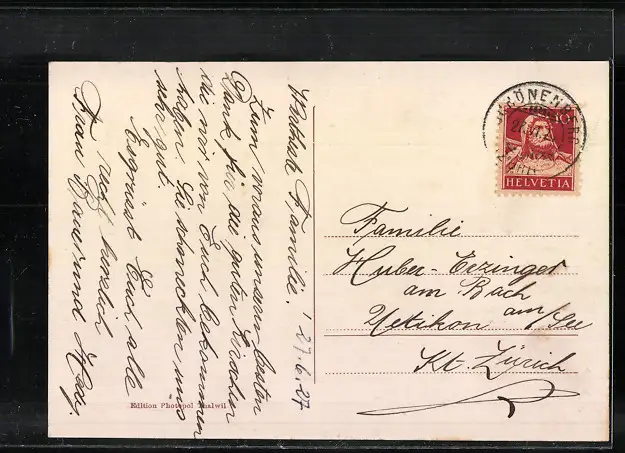 Werteste Familie!
Zum voraus unsern besten
Dank für die guten Erdbeeren
die wir von Euch bekommen
haben. Sie schmeckten uns
sehr gut.
Es grüsst Euch alle
recht herzlich
Frau und
27.6.27
Edition Photopol Thalwil
SCHÖNENBERG
HELVETIA
Familie
Huber-Erzinger
am Bach
Uetikon am/See
Kt. Zürich